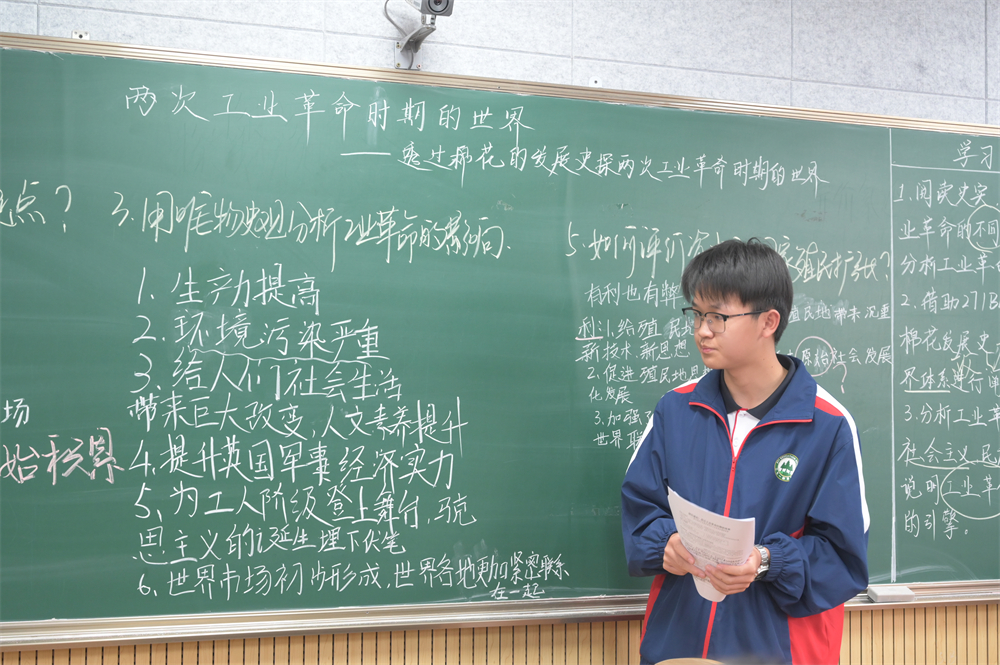 两次工业革命时期的世界
——透过棉花的发展史探两次工业革命时期的世界
点？
3.用唯物史观分析工业革命的影响.
1. 生产力提高
2. 环境污染严重
3. 给人们社会生活
带来巨大改变，人文素养提升
4. 提升英国军事经济实力
5、为工人阶级登上舞台，马克
思主义的诞生埋下伏笔
6、世界市场初步形成，世界各地更加紧密联系
在一起
场
始积累
5.如何评价 殖民扩张？
有利也有弊
殖民地带来沉重
利：1.给殖民
新技术、新思想
原始社会发展
2.促进殖民地
化发展
3.加强
世界联
学习
1.阅读史实
业革命的不同
分析工业革
2.借助271B
棉花发展史
界体系进行
3.分析工业革
社会主义
说明工业革
的引擎。